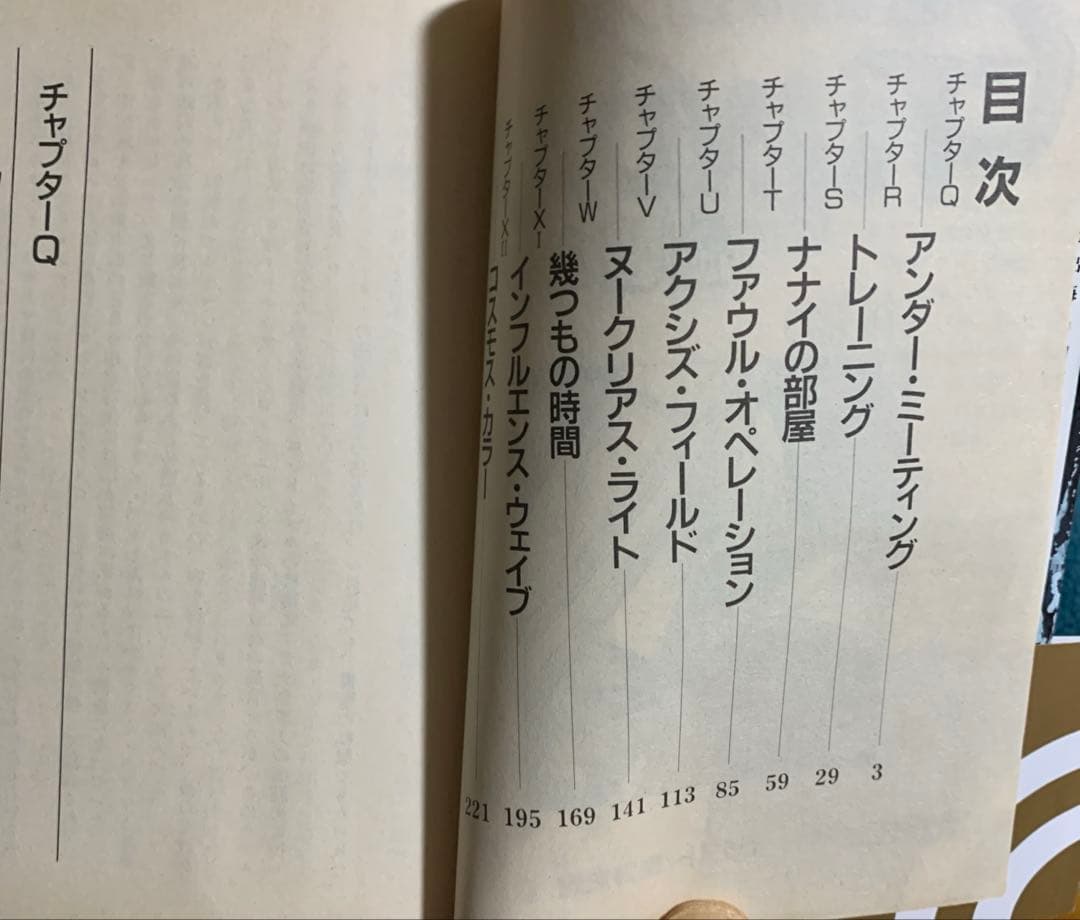 目次
チャプターQ アンダー・ミーティング 3
チャプターR トレーニング 29
チャプターS ナナイの部屋 59
チャプターT ファウル・オペレーション 85
チャプターU アクシズ・フィールド 113
チャプターV ヌークリアス・ライト 141
チャプターW 幾つもの時間 169
チャプターXI インフルエンス・ウェイブ 195
チャプターXII コスモス・カラー 221
チャプターQ